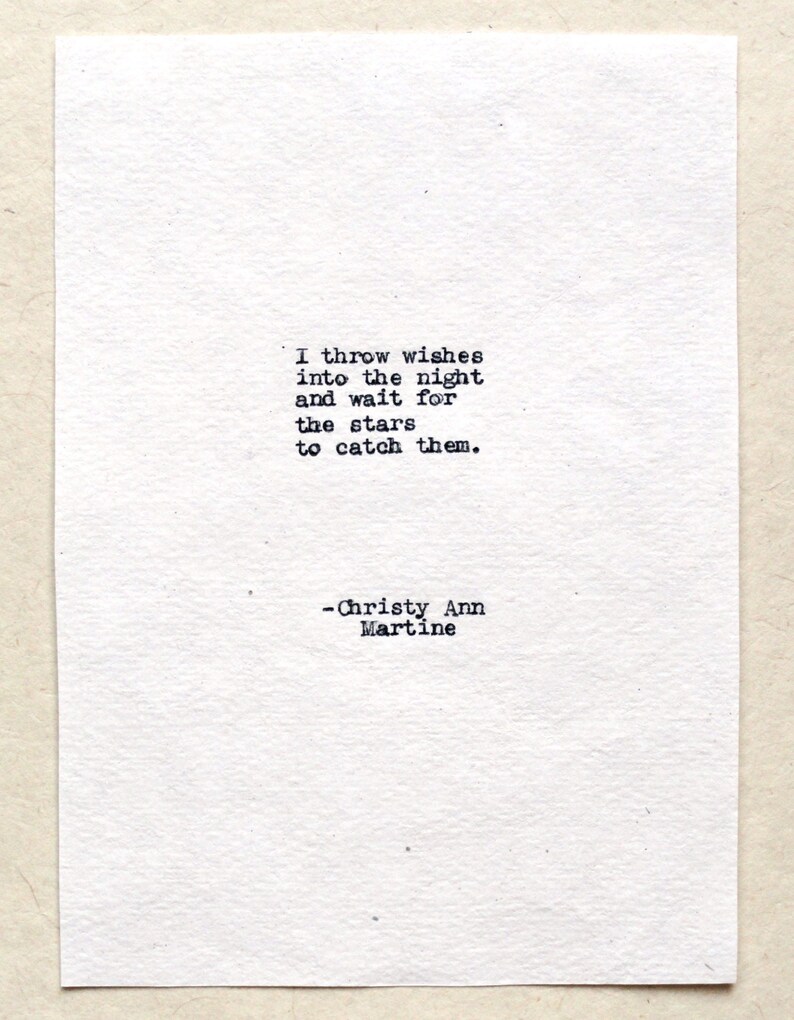 I throw wishes
into the night
and wait for
the stars
to catch them.
-Christy Ann
Martine